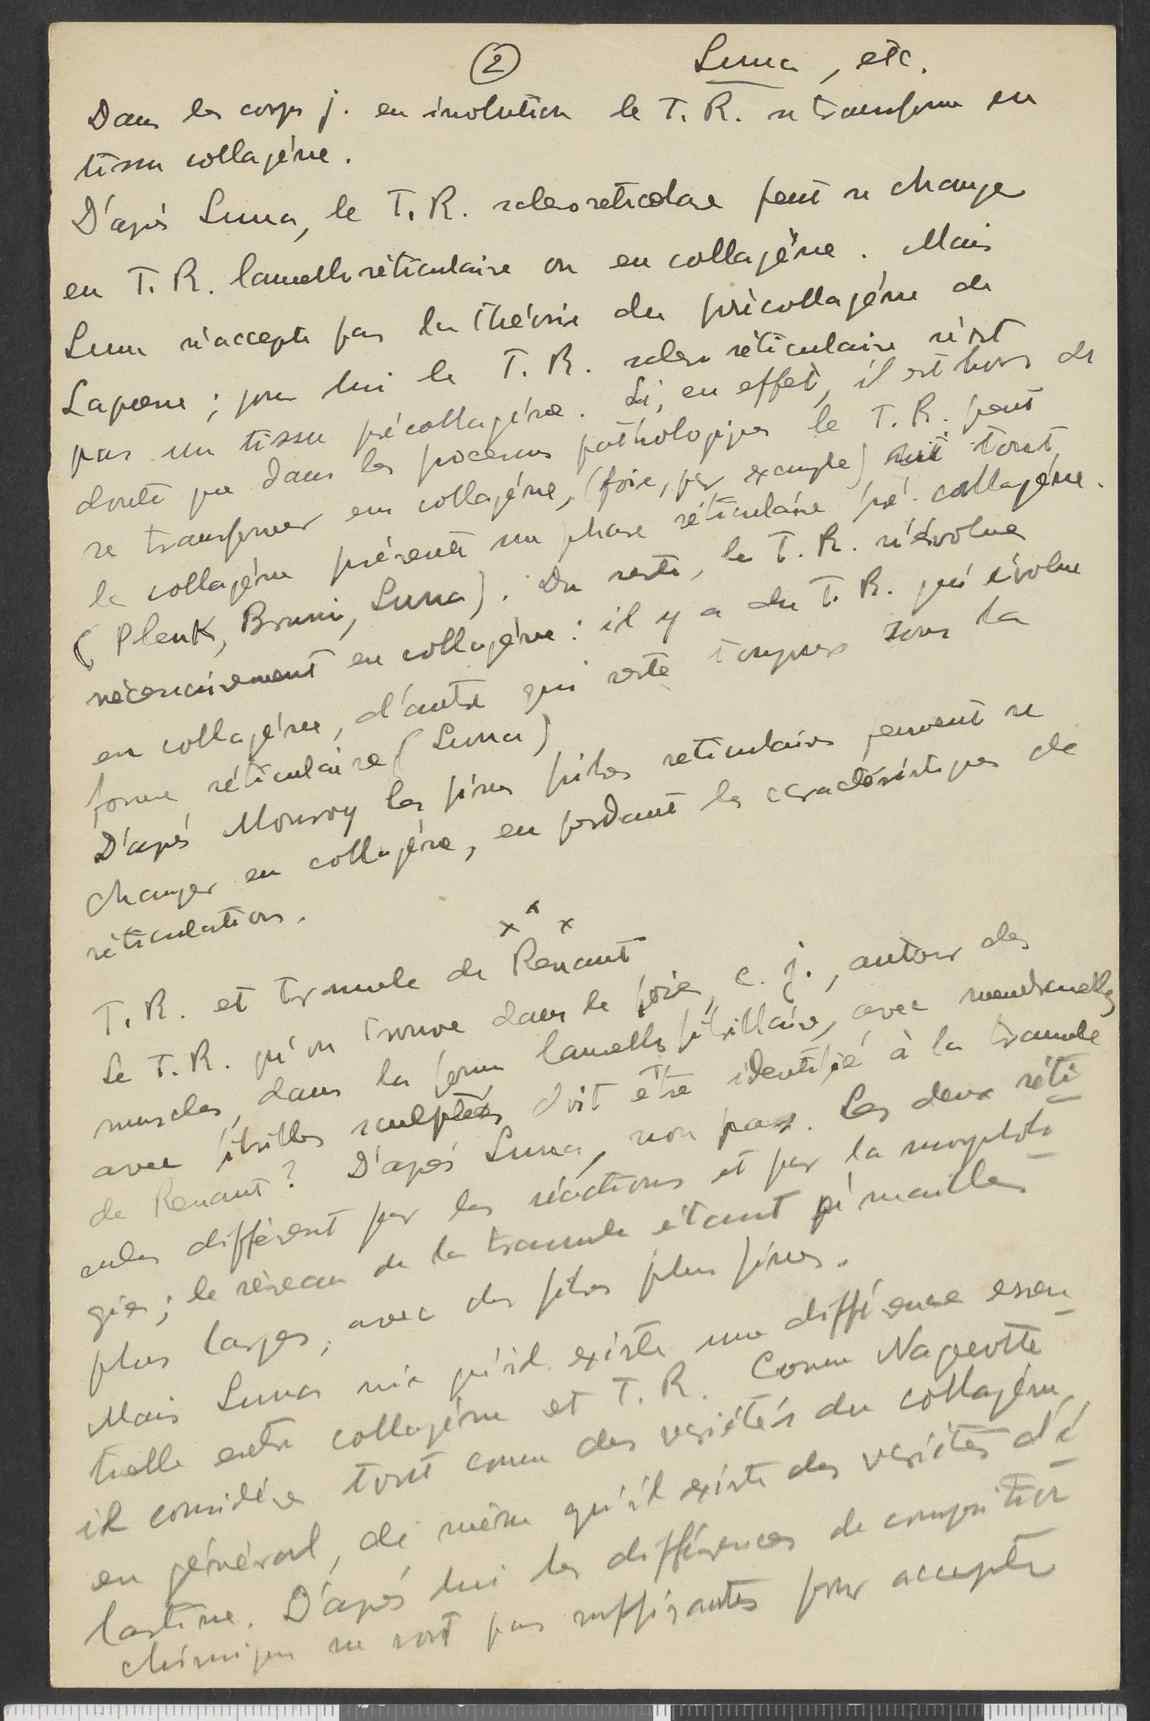 2
Luna, etc.
Dans les corps j. en involution le T. R. se transforme en
tissu collagène.
D'après Luna, le T. R. sclero reticolare peut se changer
en T. R. lamello réticulaire ou en collagène. Mais
Luna n'accepte pas la théorie du précollagène de
Laguesse ; pour lui le T. R. sclero réticulaire n'est
pas un tissu précollagène. Si, en effet, il est hors de
doute que dans les processus pathologiques le T. R. peut
se transformer en collagène, (foie, par exemple) tout
le collagène présente une phase réticulaire pré-collagène.
(Plenk, Bruni, Luna). Du reste, le T. R. n'évolue
nécessairement en collagène : il y a du T. R. qui évolue
en collagène, d'autre qui reste toujours sous la
forme réticulaire (Luna)
D'après Monroy les fines fibres reticulaires peuvent se
changer en collagène, en perdant les caractéristiques de
réticulation.
x x x
T. R. et trmule de Renaut
Le T. R. qu'on trouve dans le foie, c. j., autour des
muscles, dans la forme lamello fibrillaire, avec membranelles
avec fibrilles sculptées doit être identifié à la tramule
de Renaut ? D'après Luna, non pas. Les deux réti-
cules diffèrent par les réactions et par la morpholo-
gie ; le réseau de la tramule étant à mailles
plus larges, avec des fibres plus fines.
Mais Luna nie qu'il existe une différence essen-
tielle entre collagène et T. R. Comme Nageotte
il considère tout comme des variétés du collagène
en général, de même qu'il existe des variétés d'é-
lastine. D'après lui les différences de composition
chimique ne sont pas suffisantes pour accepter